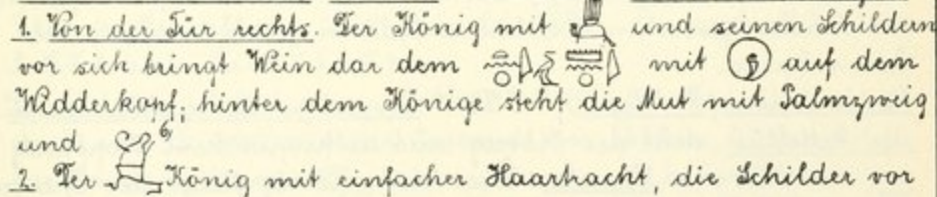 1. Von der Tür rechts. Der König mit und seinen Schildern
vor sich bringt Wein dar dem mit auf dem
Widderkopf; hinter dem Könige steht die Mut mit Palmzweig
und 6)
2. Der König mit einfacher Haartracht, die Schilder vor